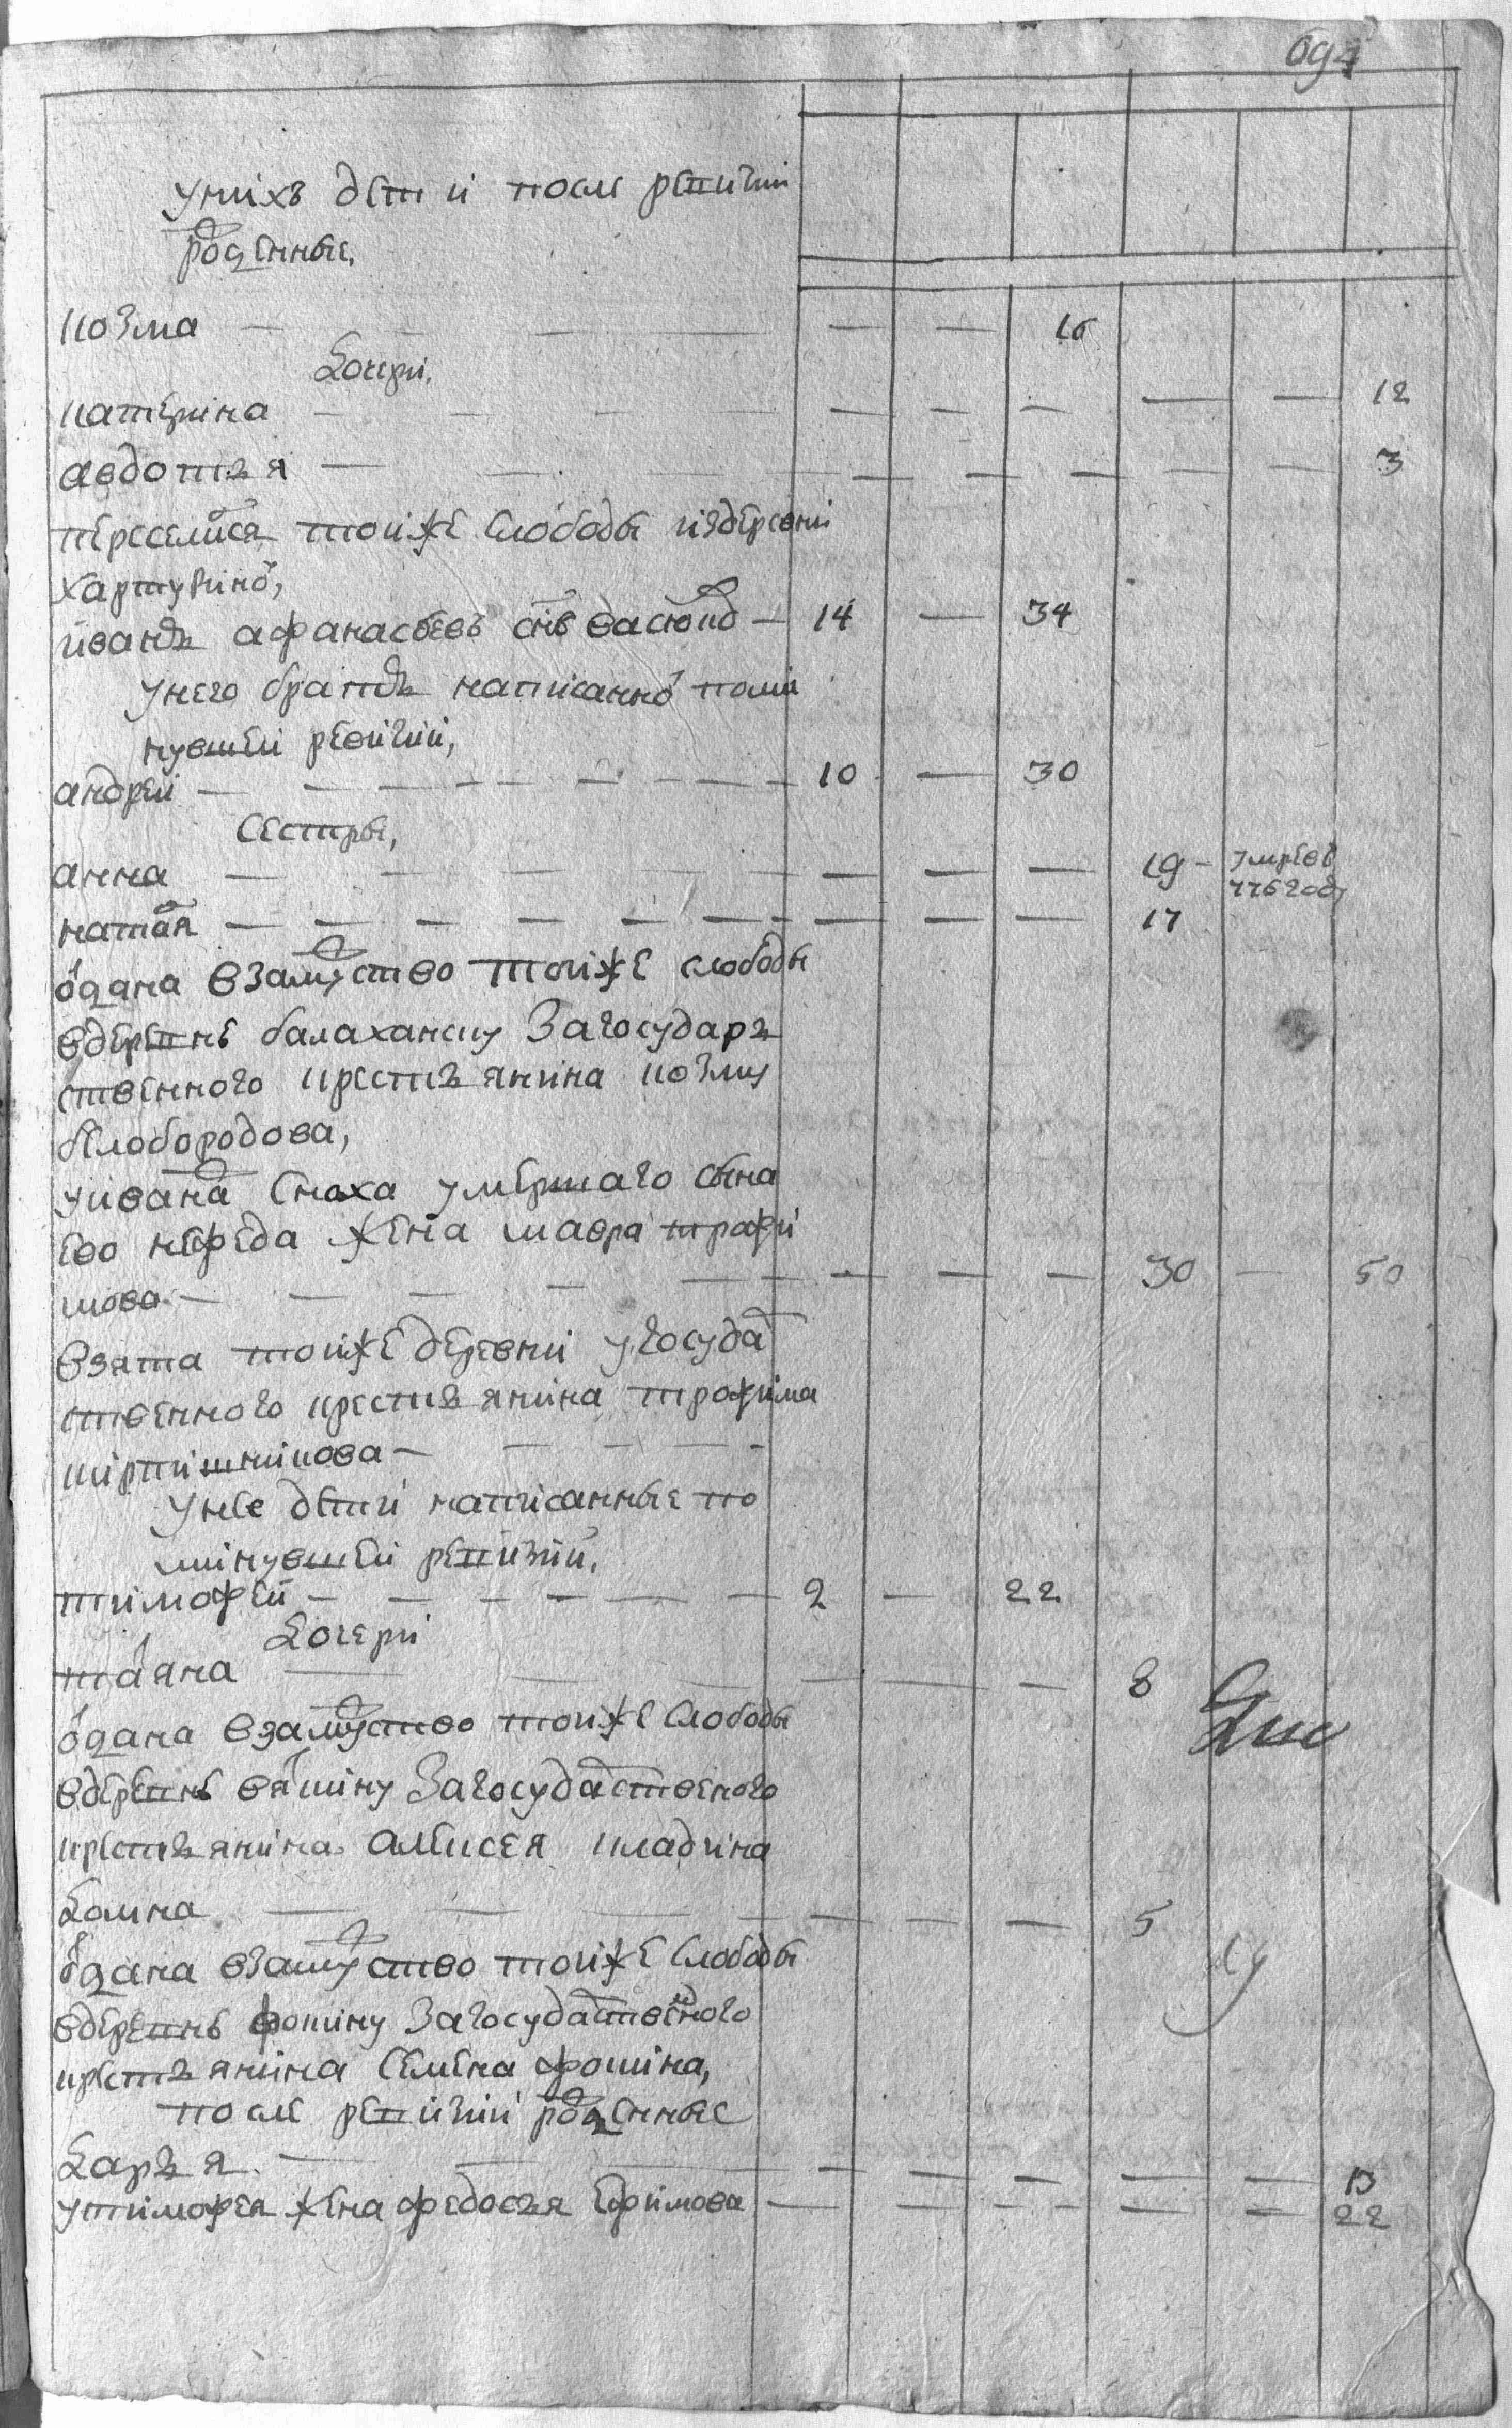 694
у них дети после ревизии
рожденные,
козма — — — — 16
дочери,
катерина — — — — — — — — — 12
авдотья — — — — — — — — — 3
переселился той же слободы из деревни
хартувиной,
иванъ афанасьевъ снъ васюков — 14 — 34
у него братъ написанной по ми
нувшей ревизии,
андрей — — — — 10 — 30
сестры,
анна — — — — — — — 19 — умре в
776 году
наталья — — — — — — — — 17
отдана в замужство той же слободы
в деревнь балаханску за государь
ственного крестьянина козму
белобородова,
у ивана сноха умершаго сына
ево нефеда жена мавра трофи
мова — — — — — — — 30 — 50
взята той же деревни у государ
ственного крестьянина трофима
У нее дети написанные по
минувшей ревизии,
тимофей — — — — — — 2 — 22
дочери
татьяна — — — — — 8
отдана в замужство той же слободы
в деревнь вяткину за государственого
крестьянина алексея кладкина
домна — — — — — — — 5
отдана в замужство той же слободы
в деревнь фомину за государственного
крестьянина семена фомина,
после ревизии рожденные
дарья — — — — — — — — 13
у тимофея жена федосья ефимова — — — — — 22